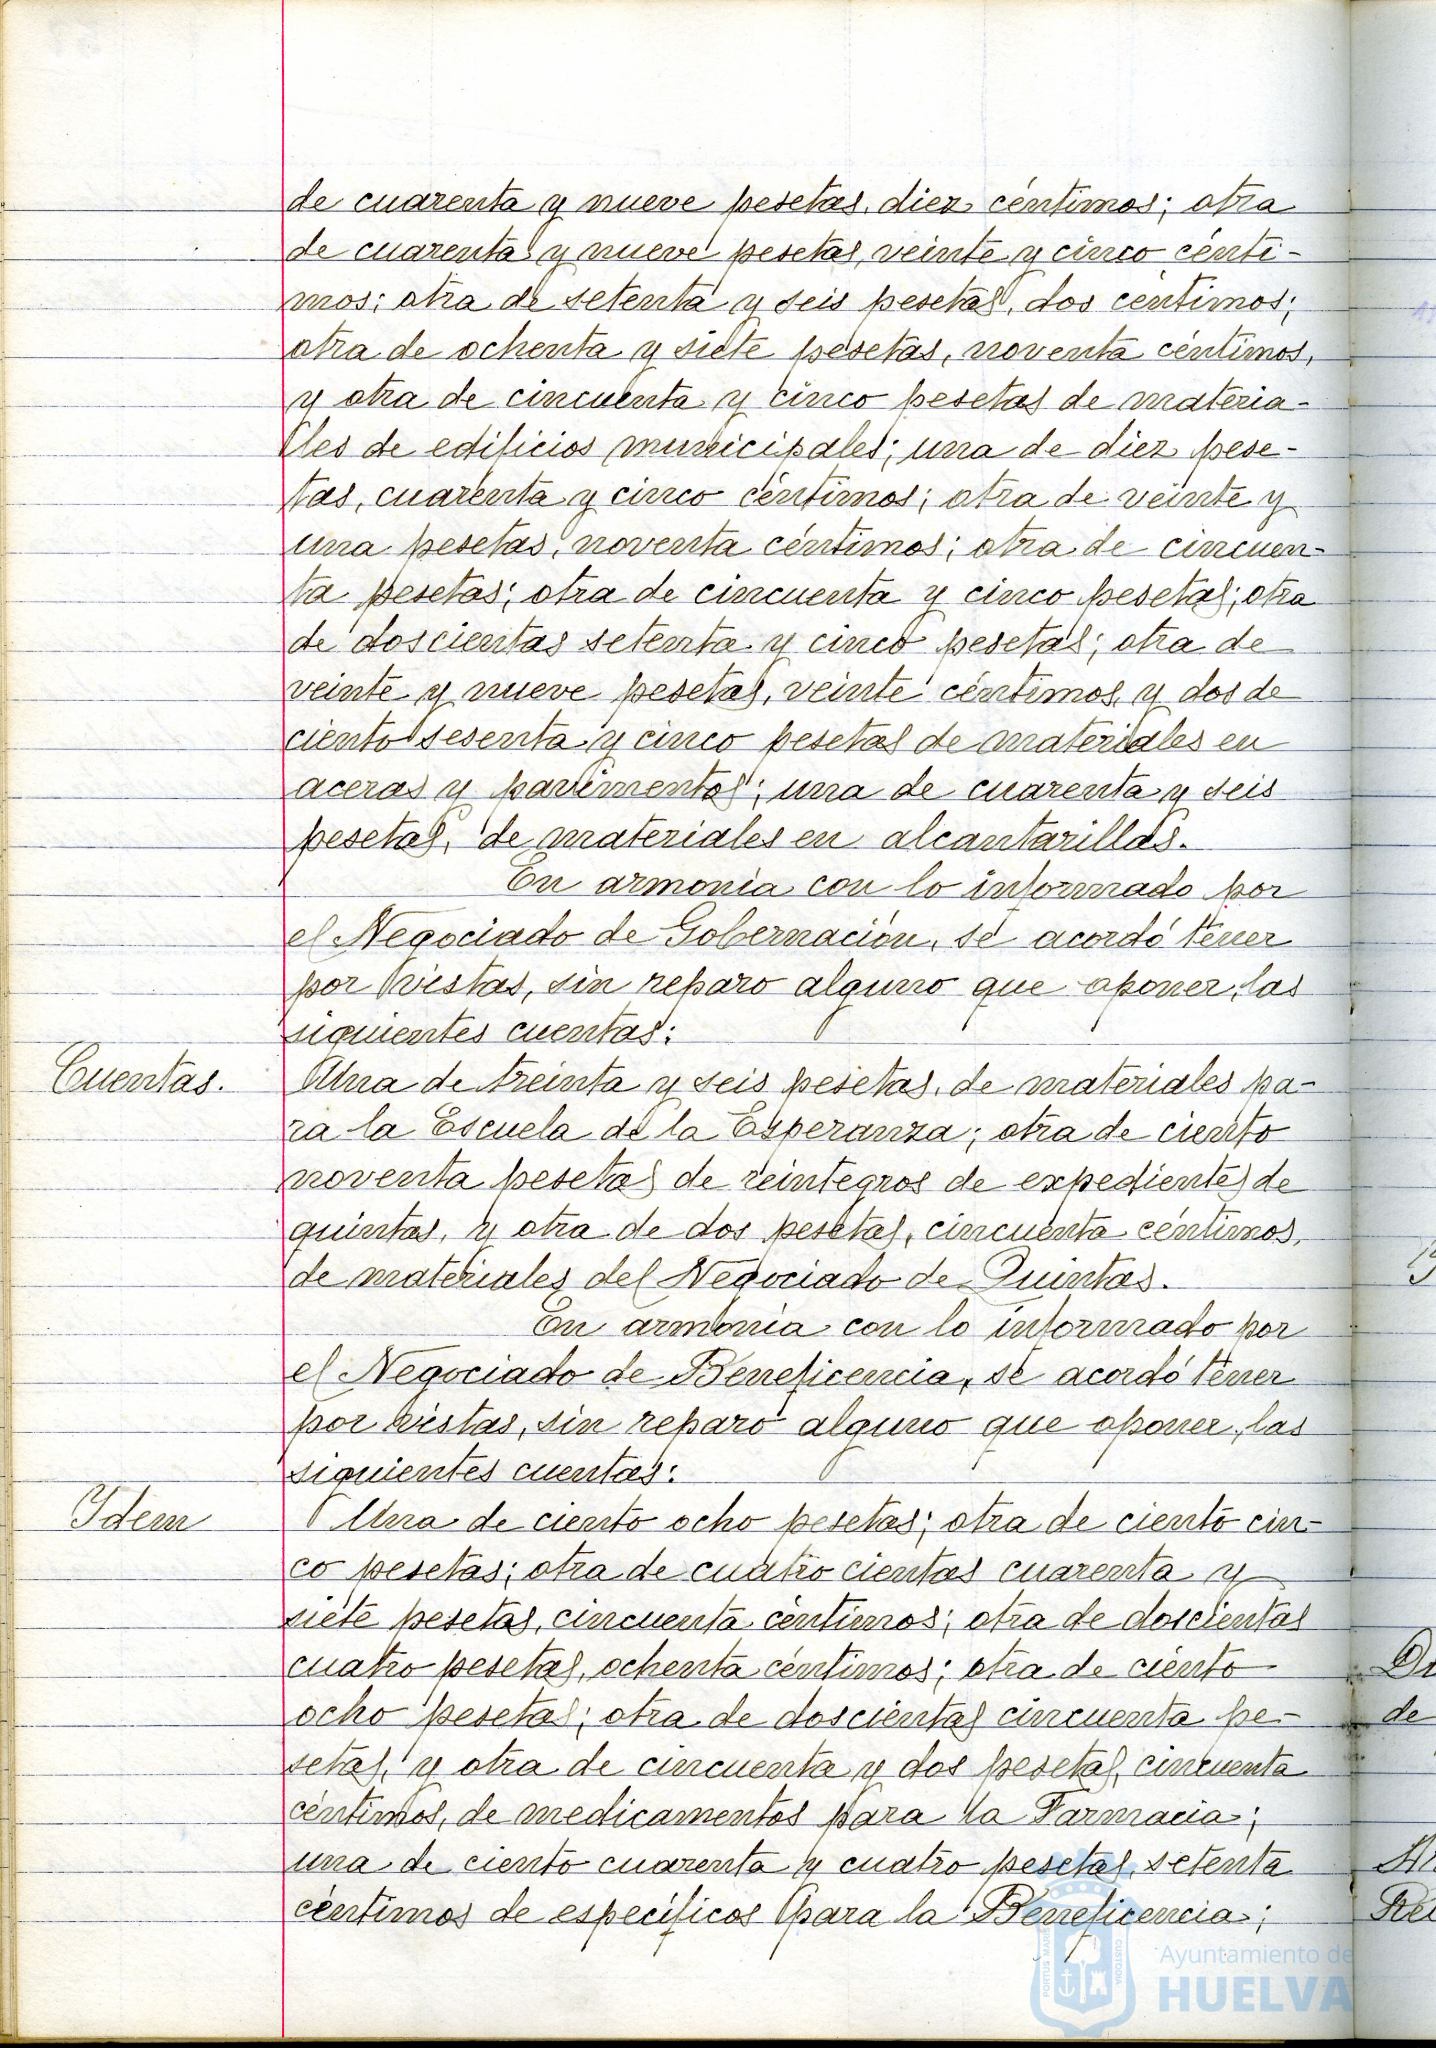 de cuarenta y nueve pesetas, diez céntimos; otra
de cuarenta y nueve pesetas, veinte y cinco cénti-
mos; otra de setenta y seis pesetas, dos céntimos;
otra de ochenta y siete pesetas, noventa céntimos,
y otra de cincuenta y cinco pesetas de materia-
les de edificios municipales; una de diez pese-
tas, cuarenta y cinco céntimos; otra de veinte y
una pesetas, noventa céntimos; otra de cincuen-
ta pesetas; otra de cincuenta y cinco pesetas; otra
de doscientas setenta y cinco pesetas; otra de
veinte y nueve pesetas, veinte céntimos, y dos de
ciento sesenta y cinco pesetas de materiales en
aceras y pavimentos; una de cuarenta y seis
pesetas, de materiales en alcantarillas.
En armonia con lo informado por
el Negociado de Gobernación, se acordó tener
por vistas, sin reparo alguno que oponer, las
siguientes cuentas:
Cuentas. Una de treinta y seis pesetas, de materiales pa-
ra la Escuela de la Esperanza; otra de ciento
noventa pesetas de reintegros de expedientes de
quintas, y otra de dos pesetas, cincuenta céntimos,
de materiales del Negociado de Quintas.
En armonia con lo informado por
el Negociado de Beneficencia, se acordó tener
por vistas, sin reparo alguno que oponer, las
siguientes cuentas:
Idem Una de ciento ocho pesetas; otra de ciento cin-
co pesetas; otra de cuatro cientas cuarenta y
siete pesetas, cincuenta céntimos; otra de doscientas
cuatro pesetas, ochenta céntimos; otra de ciento
ocho pesetas; otra de doscientas cincuenta pe-
setas, y otra de cincuenta y dos pesetas, cincuenta
céntimos, de medicamentos para la Farmacia;
una de ciento cuarenta y cuatro pesetas, setenta
céntimos de específicos para la Beneficencia;
de
PORTUS MARIS
CUSTODIA
Ayuntamiento de
HUELVA